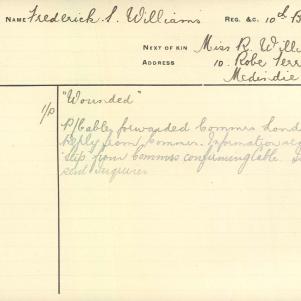 NAME Frederick S. Williams REG. &C. 10th B
NEXT OF KIN Miss R. Willi
ADDRESS 10. Robe Terr
Medindie
1/0 "Wounded"
P/Cable, forwarded Commrs Lond
Reply from Commr. Information re
slip from Commrs confirming Cable.
enquirer